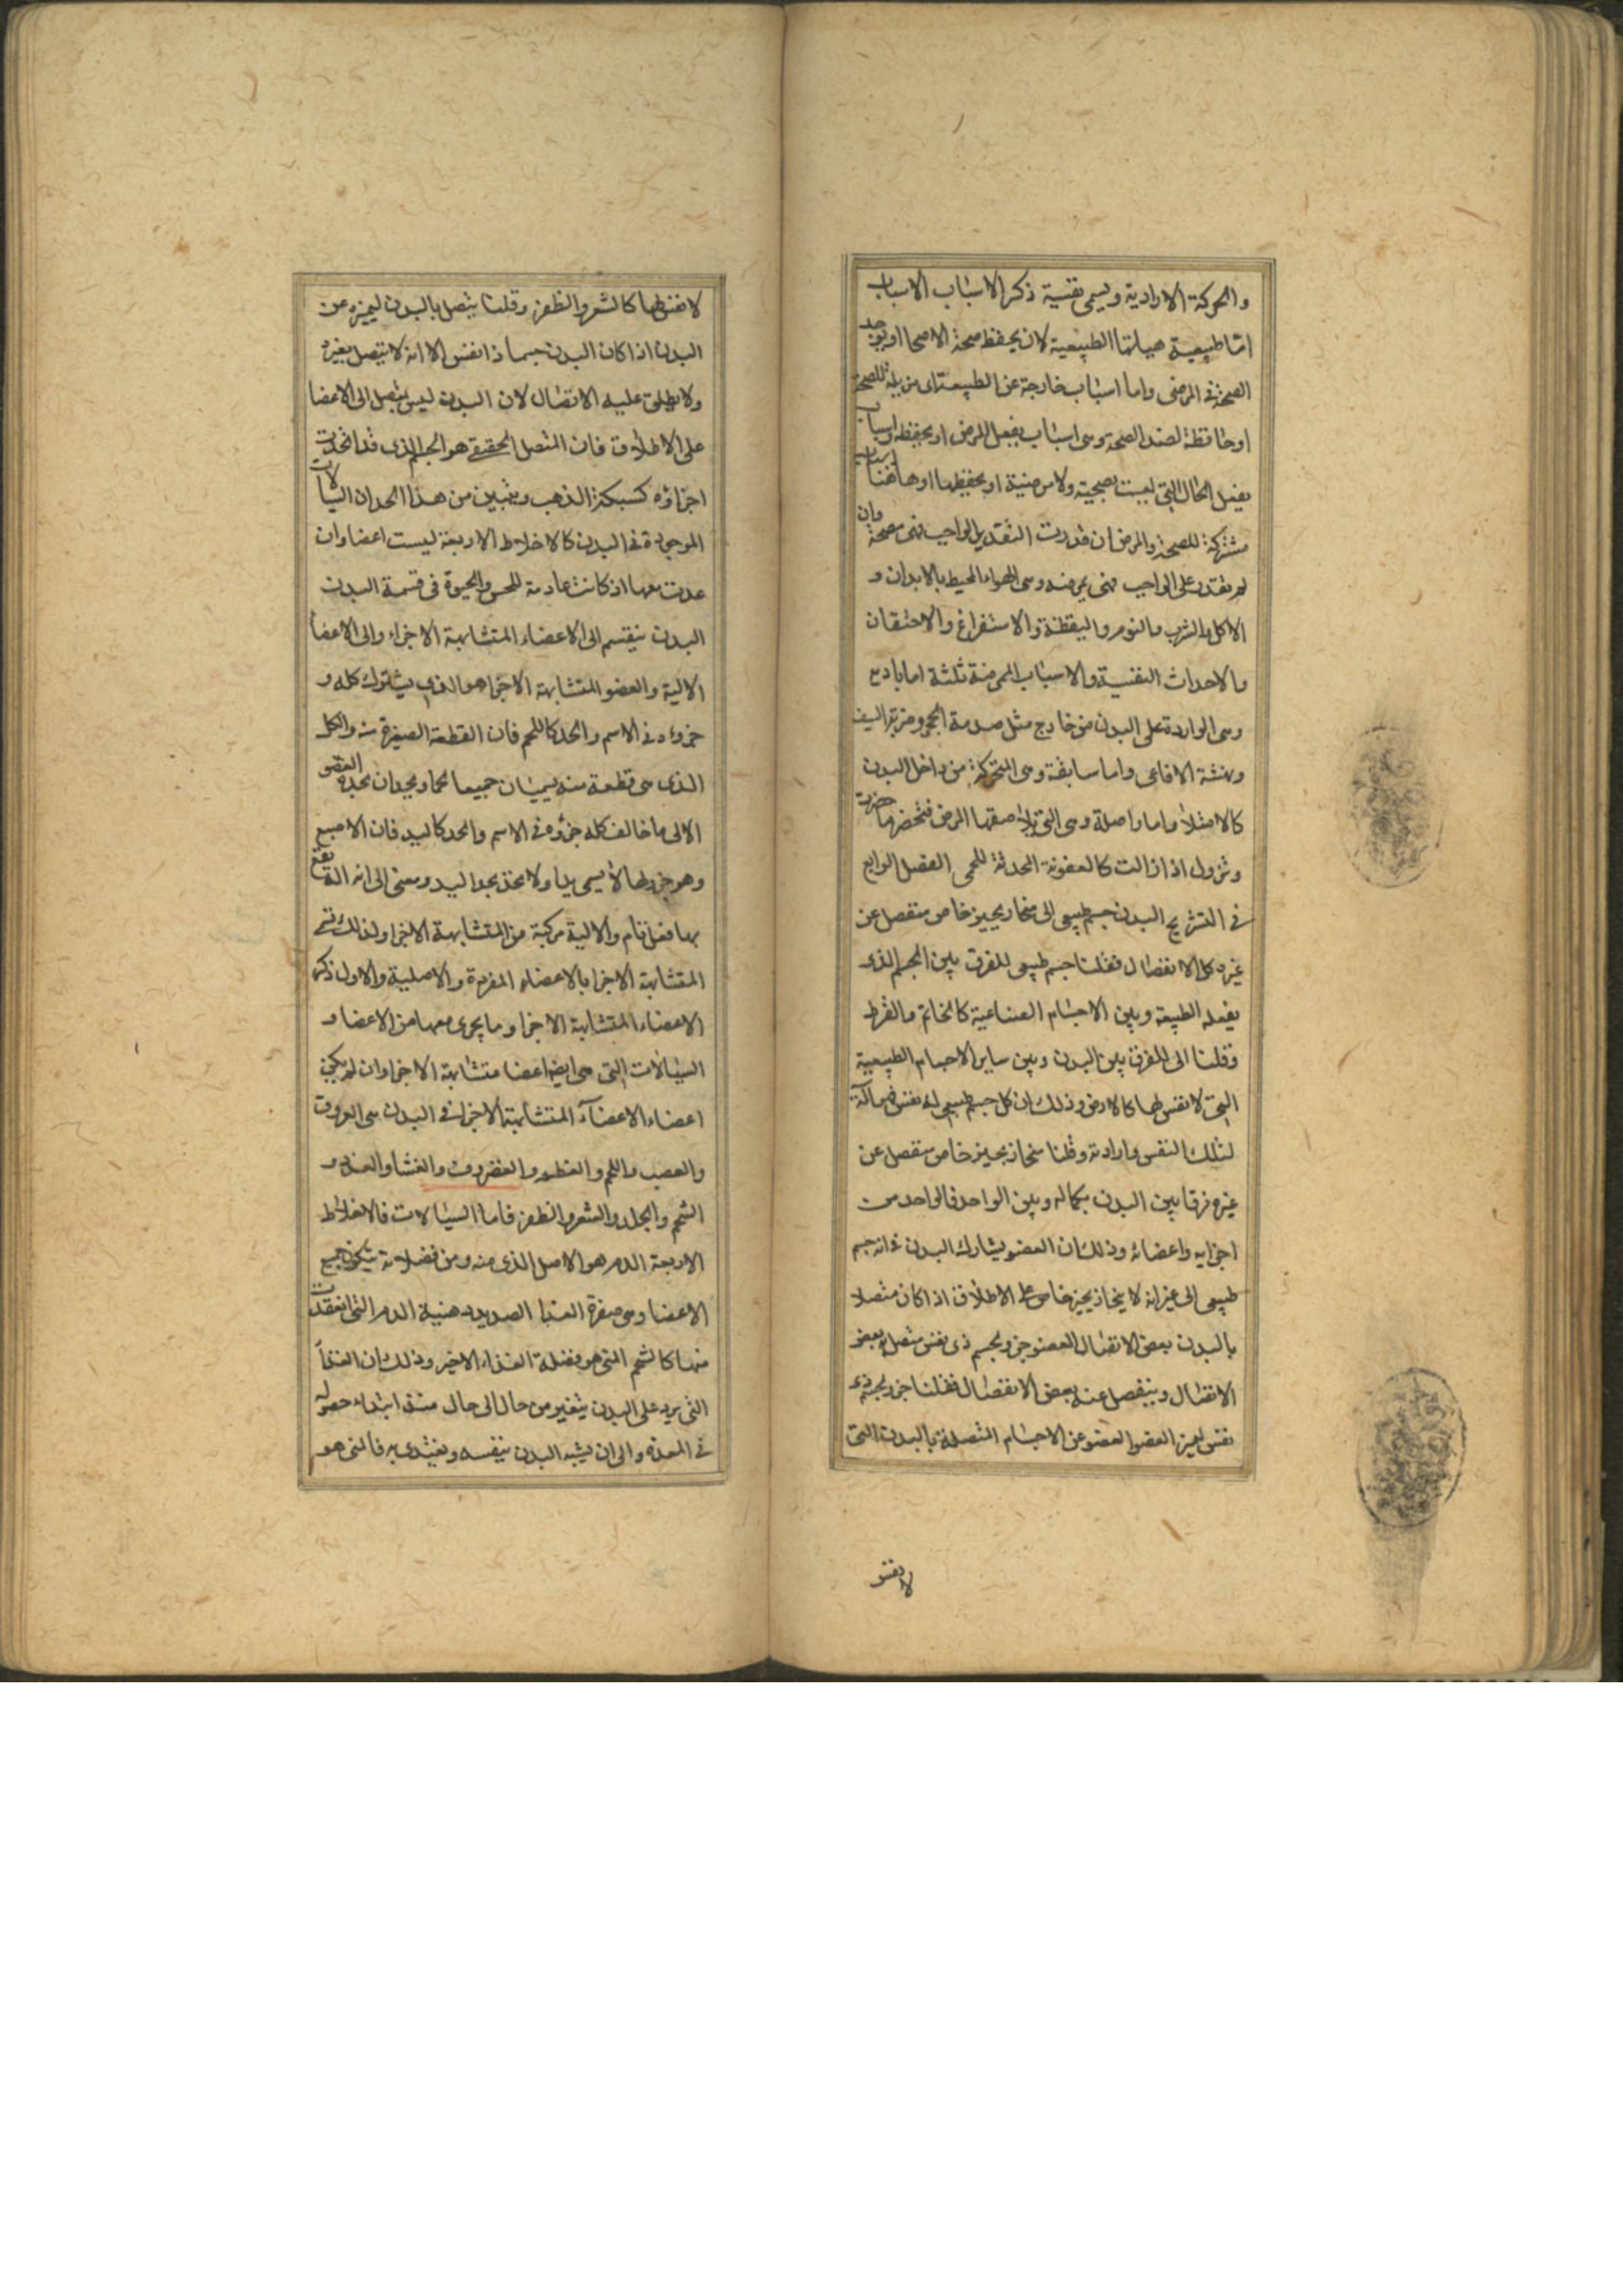 والحركة الارادية ويسمى نفسية ذكر الاسباب الاسباب
اما طبيعية هيأتها الطبيعية لان يحفظ صحة الاصحا او يوجد
الصحة فى المرضى واما اسباب خارجة عن الطبيعة اى مزيلة للصحة
او حافظة لضد الصحة وهى اسباب يفعل المرض او يحفظه واسباب
يفعل الحال التى ليست بصحية ولا مرضية او يحفظها اوها هنا اسباب
مشتركة للصحة والمرض ان قدرت التقدير الواجب فهى مصحة وان
لم تقدر على الواجب فهى ممرضة وهى الهواء المحيط بالابدان و
الاكل والشرب والنوم واليقظة والاستفراغ والاحتقان
والاحداث النفسية والاسباب الممرضة ثلثة اما بادية
وهى الواردة على البدن من خارج مثل صدمة الحجر وضربة السيف
ونهشة الافاعى واما سابقة وهى المتحركة من داخل البدن
كالامتلاء واما واصلة وهى التى يلاصقها المرض فتحضر ما حضرت
وتزول اذا زالت كالعفونة المحدثة للحمى الفصل الرابع
فى التشريح البدن جسم طبيعى الى منحاز بحيز خاص منفصل عن
غيره كل الانفصال فقلنا جسم طبيعى للفرق بين الجسم الذى
يفعله الطبيعة وبين الاجسام الصناعية كالخاتم والقرط
وقلنا الى للفرق بين البدن وبين ساير الاجسام الطبيعية
التى لا نفس لها كالارض وذلك ان كل جسم طبيعى له نفس فهو آلة
لتلك النفس وارادته وقلنا منحاز بحيز خاص منفصل عن
غيره فرقا بين البدن بكماله وبين الواحد فالواحد من
اجزايه واعضائه وذلك ان العضو يشارك البدن فى انه جسم
طبيعى الى غير انه لا ينحاز بحيز خاص على الاطلاق اذا كان متصلا
بالبدن بعض الاتصال العضو جزو لجسم ذى نفس متصل به بعض
الاتصال وينفصل عنه بعض الانفصال فقلنا جزو لجسم ذى
نفس ليميز العضو العضو عن الاجسام المتصلة بالبدن التى
لا نفس
لا نفس لها كالشعر والظفر وقلنا يتصل بالبدن ليميزه عن
البدن اذا كان البدن جسما ذا نفس الا انه لا يتصل بغيره
ولا يطلق عليه الاتصال لان البدن ليس يتصل الى الاعضا
على الاطلاق فان المتصل الحقيقى هو الجسم الذى قد اتحدت
اجزاؤه كسبيكة الذهب ويتبين من هذا الحد ان السيالات
الموجودة فى البدن كالاخلاط الاربعة ليست اعضا وان
عدت معها اذ كانت عادمة للحس والحيوة فى قسمة البدن
البدن ينقسم الى الاعضاء المتشابهة الاجزاء والى الاعضاء
الالية والعضو المتشابهة الاجزا هو الذى يشترك كله و
جزوءه فى الاسم والحد كاللحم فان القطعة الصغيرة منه والكل
الذى هى قطعة منه يسميان جميعا لحما ويحدان بحده العضو
الالى ما خالف كله جزؤه فى الاسم والحد كاليد فان الاصبع
وهو جزو لها لا يسمى يدا ولا يحد بحد اليد ومعنى الى انه آلة يقع
بها فعل تام والالية مركبة من المتشابهة الاجزا ولذلك سمى
المتشابهة الاجزا بالاعضاء المفردة والاصلية والاول ذكر
الاعضاء المتشابهة الاجزا وما يجرى معها من الاعضا و
السيالات التى هى ايضا اعضا متشابهة الاجزا وان لم يكن
اعضاء الاعضآء المتشابهة الاجزا فى البدن هى العروق
والعصب واللحم والعظم والغضروف والغشا والغدد و
الشحم والجلد والشعر والظفر فاما السيالات فالاخلاط
الاربعة الدم هو الاصل الذى منه ومن فضلاته يتكون جميع
الاعضا وهى صفرة الدم التى انعقدت
منها كالشحم التى هو فضلة الغذاء الاخير وذلك ان الغذآ
التى يرد على البدن يتغير من حال الى حال منذ ابتداء حصوله
فى المعدة والى ان يشبه البدن بنفسه ويغتذى به فالتى هو